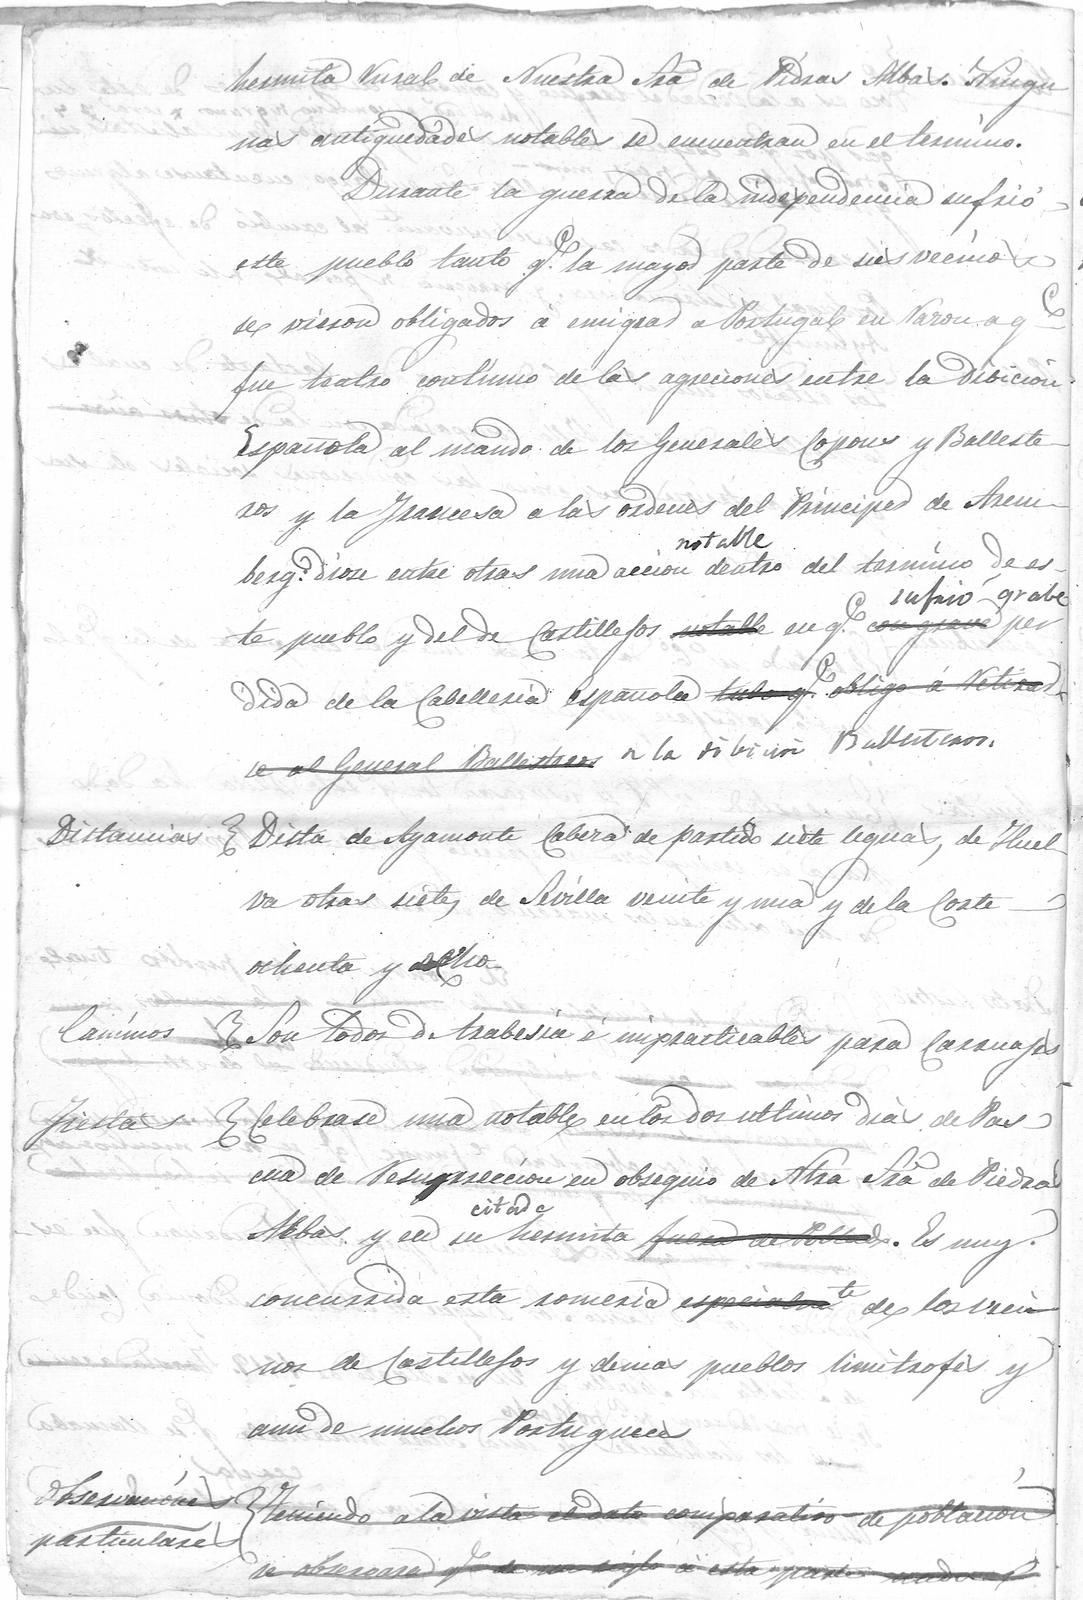 hermita rural de Nuestra Srã de Piedras Albas. Ningu
nas antiguedades notables se encuentran en el termino.
Durante la guerra de la independencia sufrió
este pueblo tanto q.e la mayor parte de sus vecinos
se vieron obligados á emigrar a Portugal en razon a q.e
fue teatro continuo de las agreciones entre la Divicion
Española al mando de los Generales Copons y Balleste-
ros y la Francesa a las ordenes del Principe de Arem-
notable
berg. diose entre otras una accion dentro del termino de es-
sufrió grabe
te pueblo y del de Castillejos notable en q.e con grave per
dida de la Caballeria española tubo q.e obligo á retirar
se al General Ballesteros a la dibicion Ballesteros.
Distancias Dista de Ayamonte Cabeza de partido siete leguas, de Huel-
va otras siete, de Sevilla veinte y una y de la Corte
ochenta y ocho
Caminos Son todos de trabesia é impracticables para Carruajes
Fiestas Celebrase una notable en los dos ultimos dias de Pas
cua de Resurreccion en obsequio de Ntra Srã de Piedras
citada
Albas y en su hermita fuera de Poblado. Es muy
concurrida esta romeria especialmte de los veci
nos de Castillejos y demas pueblos limitrofes y
aun de muchos Portugueses
Observaciones Teniendo a la vista el dato comparativo de poblacion
particulares
se observara q.e de un siglo á esta parte